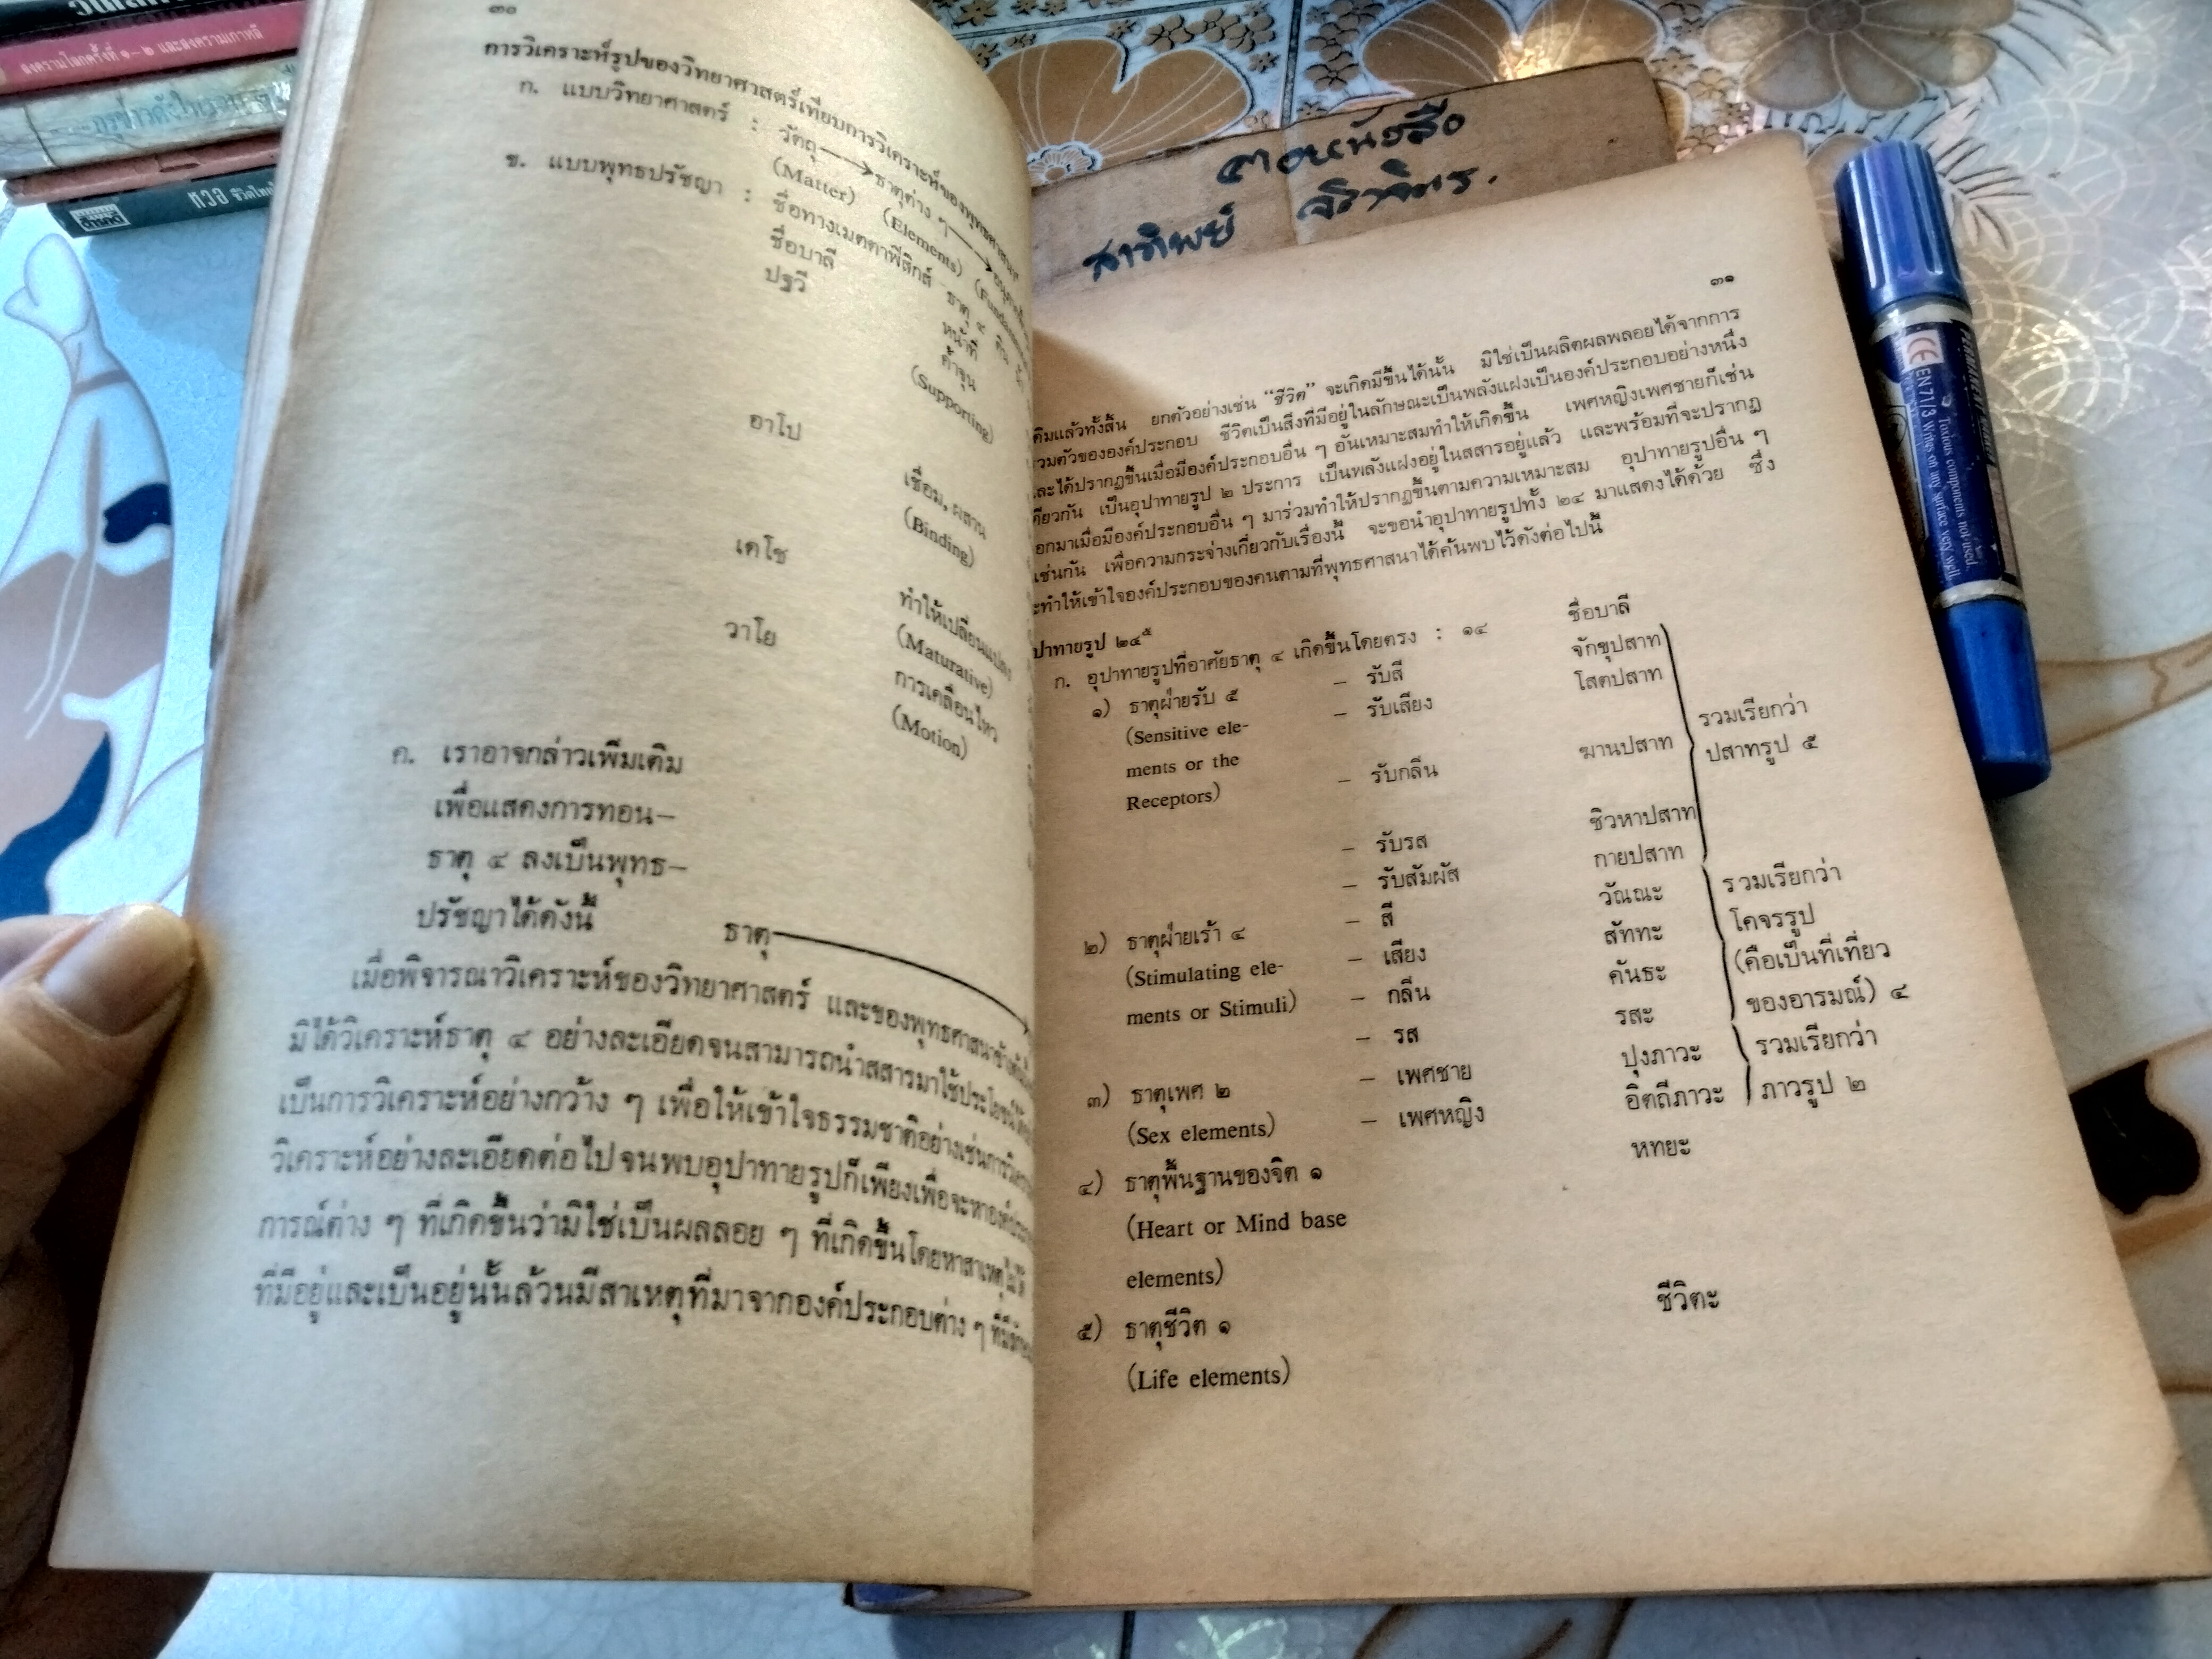 สงครามโลกครั้งที่ ๑-๒ และสงครามเกาหลี
ทวอ ชีวิตไทย
๓๐
การวิเคราะห์รูปของวิทยาศาสตร์เทียบการวิเคราะห์ของพุทธศาสนา
ก. แบบวิทยาศาสตร์ : วัตถุ ธาตุต่าง ๆ
(Matter) (Elements)
ข. แบบพุทธปรัชญา : ชื่อทางเมตตาฟิสิกส์ ธาตุ ๔ ดิน
ชื่อบาลี หน้าที่
ปฐวี ค้ำจุน
(Supporting)
อาโป เชื่อม, ผสาน
(Binding)
เตโช ทำให้เปลี่ยนแปลง
(Maturative)
วาโย การเคลื่อนไหว
(Motion)
ค. เราอาจกล่าวเพิ่มเติม
เพื่อแสดงการทอน–
ธาตุ ๔ ลงเป็นพุทธ–
ปรัชญาได้ดังนี้ ธาตุ
เมื่อพิจารณาวิเคราะห์ของวิทยาศาสตร์ และของพุทธศาสนาข้างต้น
มิได้วิเคราะห์ธาตุ ๔ อย่างละเอียดจนสามารถนำสสารมาใช้ประโยชน์ได้
เป็นการวิเคราะห์อย่างกว้าง ๆ เพื่อให้เข้าใจธรรมชาติอย่างเช่นการ
วิเคราะห์อย่างละเอียดต่อไปจนพบอุปาทายรูปก็เพียงเพื่อจะหา
การณ์ต่าง ๆ ที่เกิดขึ้นว่ามิใช่เป็นผลลอย ๆ ที่เกิดขึ้นโดยหาสาเหตุไม่ได้
ที่มีอยู่และเป็นอยู่นั้นล้วนมีสาเหตุที่มาจากองค์ประกอบต่าง ๆ
ตอหนังสือ
สาทิพย์
๓๑
ดิมแล้วทั้งสิ้น ยกตัวอย่างเช่น “ชีวิต” จะเกิดมีขึ้นได้นั้น มิใช่เป็นผลิตผลพลอยได้จากการ
วมตัวขององค์ประกอบ ชีวิตเป็นสิ่งที่มีอยู่ในลักษณะเป็นพลังแฝงเป็นองค์ประกอบอย่างหนึ่ง
ละได้ปรากฏขึ้นเมื่อมีองค์ประกอบอื่น ๆ อันเหมาะสมทำให้เกิดขึ้น เพศหญิงเพศชายก็เช่น
ดียวกัน เป็นอุปาทายรูป ๒ ประการ เป็นพลังแฝงอยู่ในสสารอยู่แล้ว และพร้อมที่จะปรากฏ
อกมาเมื่อมีองค์ประกอบอื่น ๆ มาร่วมทำให้ปรากฏขึ้นตามความเหมาะสม อุปาทายรูปอื่น ๆ
เช่นกัน เพื่อความกระจ่างเกี่ยวกับเรื่องนี้ จะขอนำอุปาทายรูปทั้ง ๒๔ มาแสดงได้ด้วย ซึ่ง
ะทำให้เข้าใจองค์ประกอบของคนตามที่พุทธศาสนาได้ค้นพบไว้ดังต่อไปนี้
ปาทายรูป ๒๔๕
ก. อุปาทายรูปที่อาศัยธาตุ ๔ เกิดขึ้นโดยตรง : ๑๔ ชื่อบาลี
๑) ธาตุฝ่ายรับ ๕ – รับสี จักขุปสาท
(Sensitive ele- – รับเสียง โสตปสาท รวมเรียกว่า
ments or the – รับกลิ่น ฆานปสาท ปสาทรูป ๕
Receptors)
– รับรส ชิวหาปสาท
– รับสัมผัส กายปสาท
๒) ธาตุฝ่ายเร้า ๔ – สี วัณณะ รวมเรียกว่า
(Stimulating ele- – เสียง สัททะ โคจรรูป
ments or Stimuli) – กลิ่น คันธะ (คือเป็นที่เที่ยว
– รส รสะ ของอารมณ์) ๔
๓) ธาตุเพศ ๒ – เพศชาย ปุงภาวะ รวมเรียกว่า
(Sex elements) – เพศหญิง อิตถีภาวะ ภาวรูป ๒
๔) ธาตุพื้นฐานของจิต ๑ หทยะ
(Heart or Mind base
elements)
๕) ธาตุชีวิต ๑ ชีวิตะ
(Life elements)
CE EN71/3 Writes on any surface very well.
Toxious components not used.